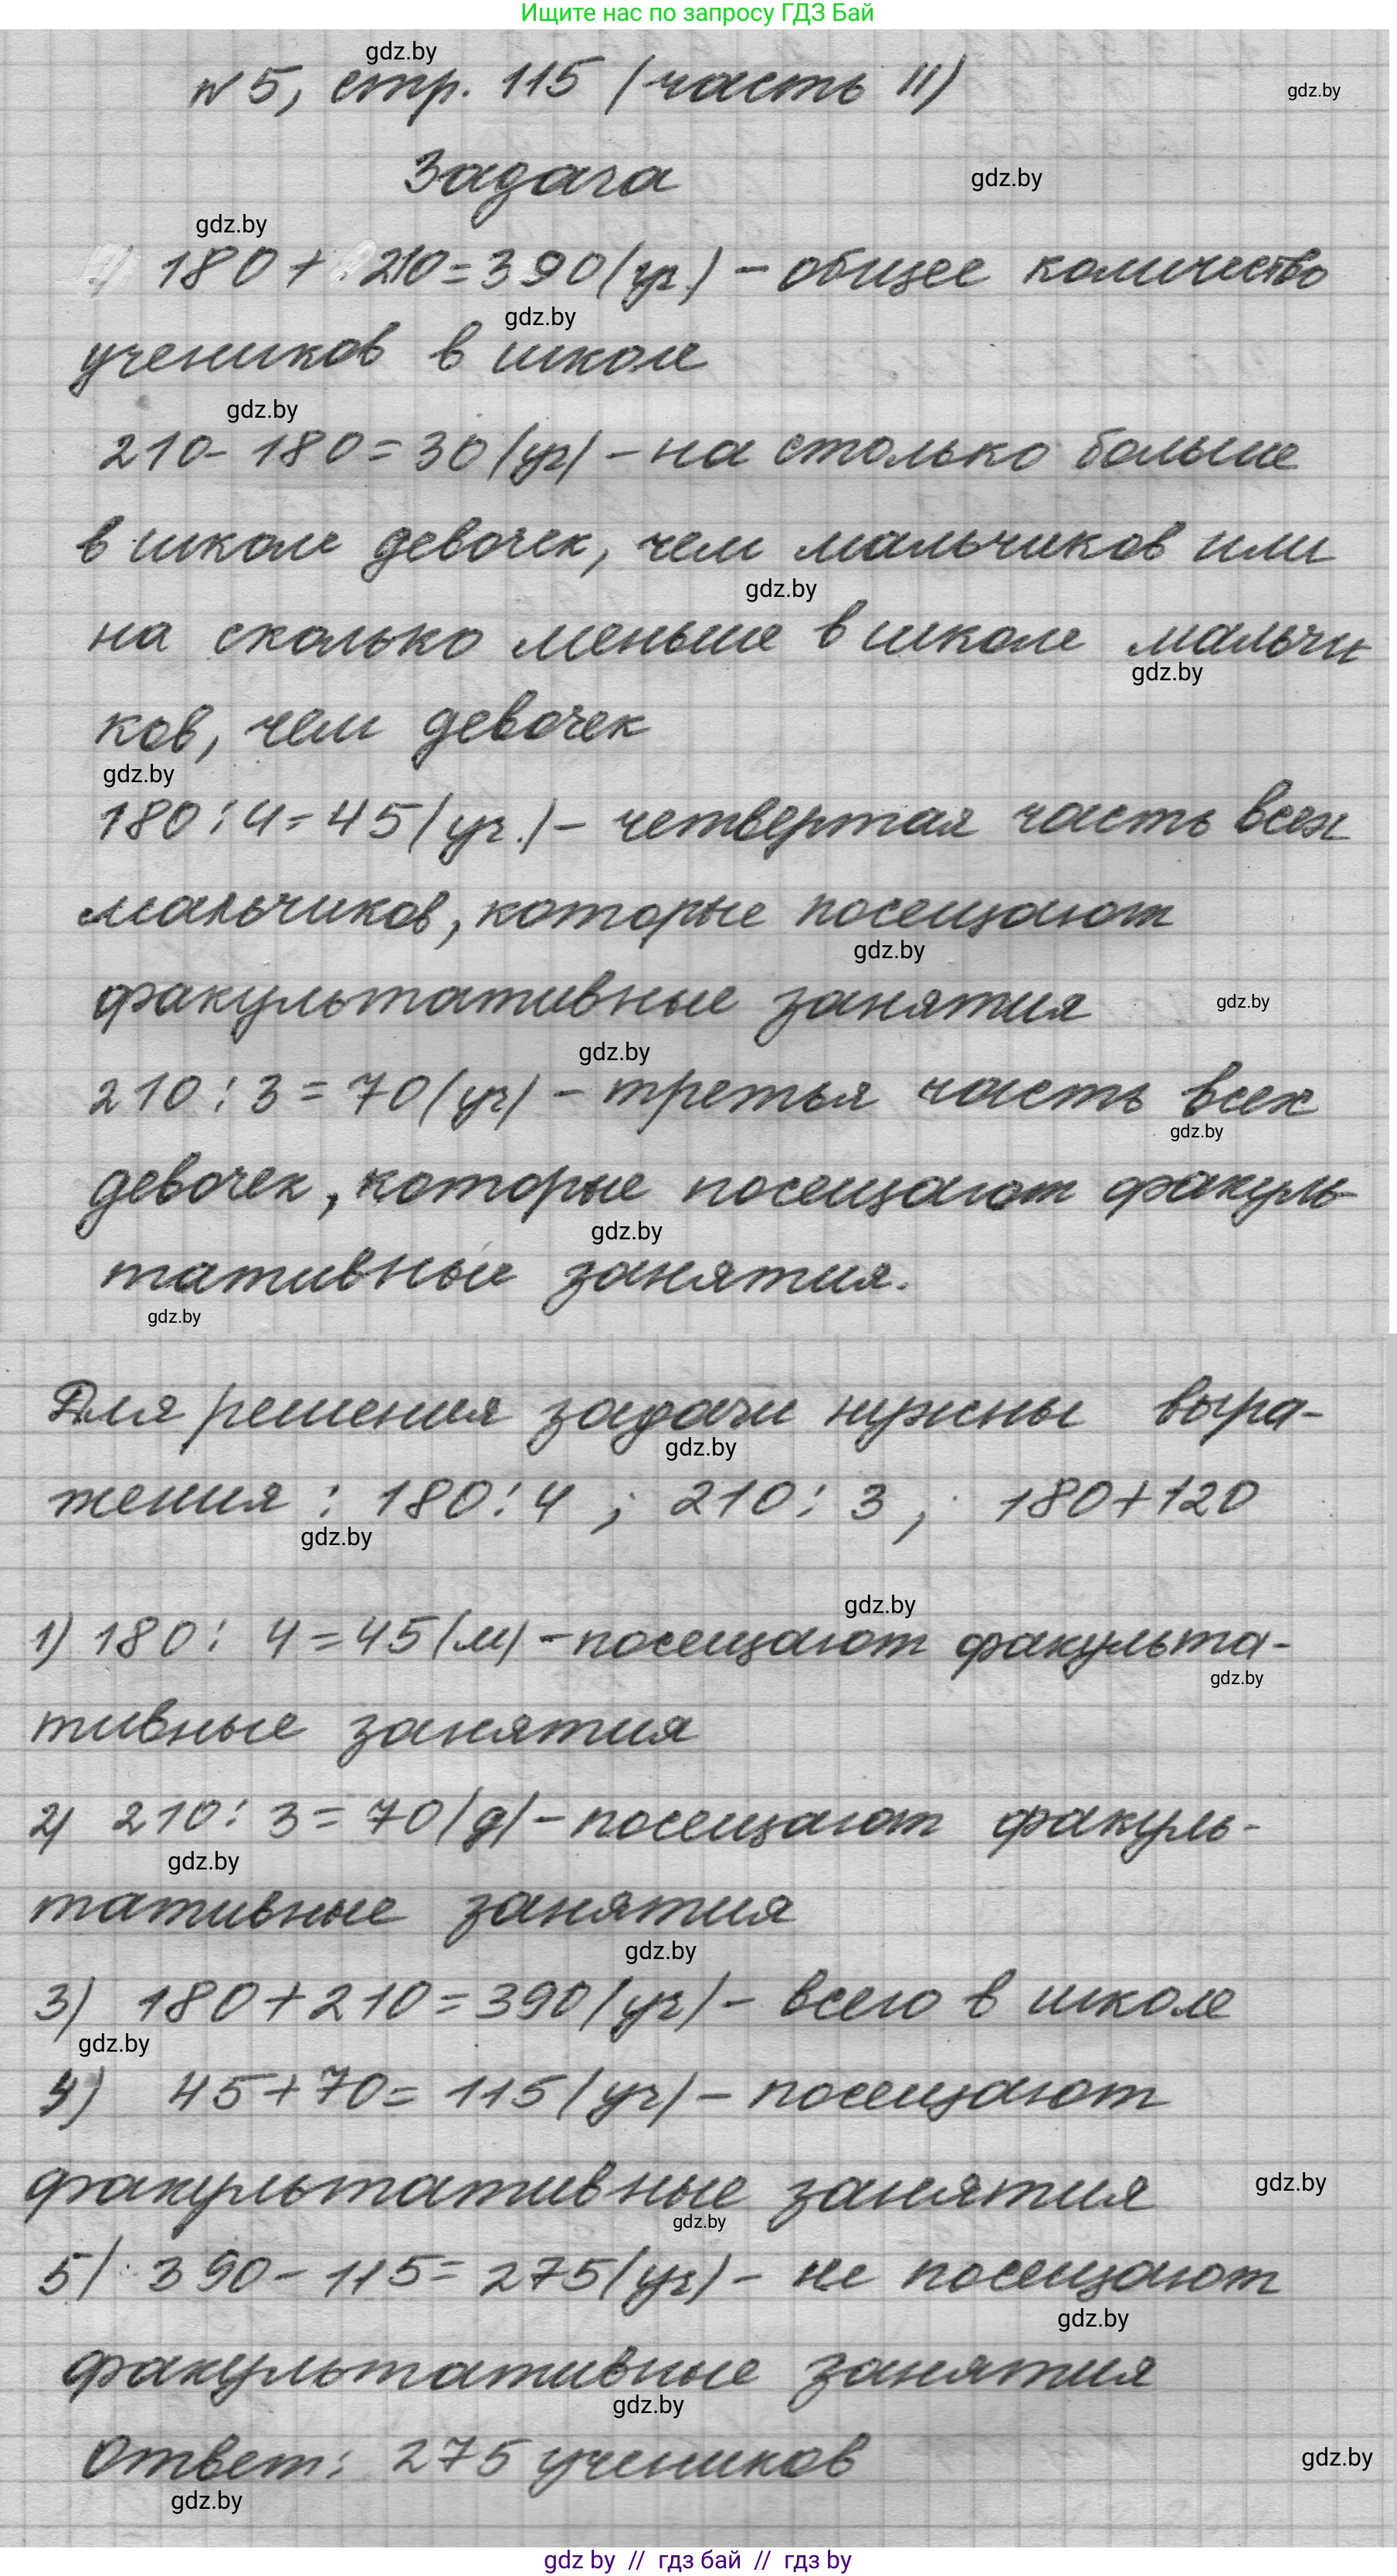 Ищите нас по запросу ГДЗ Бай
gdz.by
№5, стр. 115 (часть II)
gdz.by
Задача
gdz.by
gdz.by
180 + 210 = 390 (уч.) - общее количество
gdz.by
учеников в школе
gdz.by
210 - 180 = 30 (уч) - на столько больше
в школе девочек, чем мальчиков или
gdz.by
на сколько меньше в школе мальчи
gdz.by
ков, чем девочек
gdz.by
180 : 4 = 45 (уч.) - четвертая часть всех
мальчиков, которые посещают
gdz.by
факультативные занятия
gdz.by
gdz.by
210 : 3 = 70 (уч) - третья часть всех
gdz.by
девочек, которые посещают факуль-
gdz.by
тативные занятия.
gdz.by
Для решения задачи нужны выра-
gdz.by
жения : 180 : 4 ; 210 : 3 ; 180 + 120
gdz.by
gdz.by
1) 180 : 4 = 45 (м) - посещают факульта-
gdz.by
тивные занятия
2) 210 : 3 = 70 (д) - посещают факуль-
gdz.by
тативные занятия
gdz.by
3) 180 + 210 = 390 (уч) - всего в школе
gdz.by
4) 45 + 70 = 115 (уч) - посещают
факультативные занятия
gdz.by
gdz.by
5) 390 - 115 = 275 (уч) - не посещают
gdz.by
факультативные занятия
gdz.by
Ответ: 275 учеников
gdz.by
gdz.by
gdz by // гдз бай // гдз by